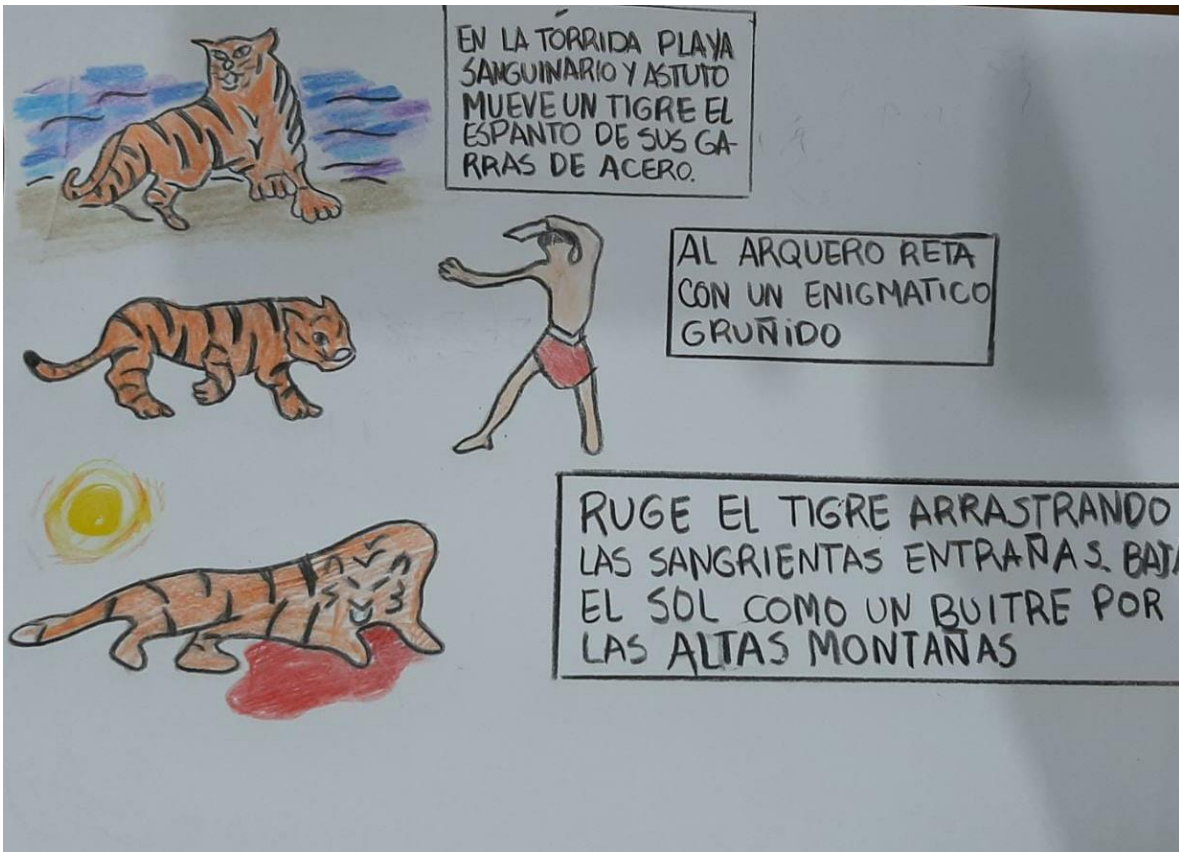 EN LA TÓRRIDA PLAYA
SANGUINARIO Y ASTUTO
MUEVE UN TIGRE EL
ESPANTO DE SUS GA-
RRAS DE ACERO.
AL ARQUERO RETA
CON UN ENIGMATICO
GRUÑIDO
RUGE EL TIGRE ARRASTRANDO
LAS SANGRIENTAS ENTRAÑAS. BAJA
EL SOL COMO UN BUITRE POR
LAS ALTAS MONTAÑAS